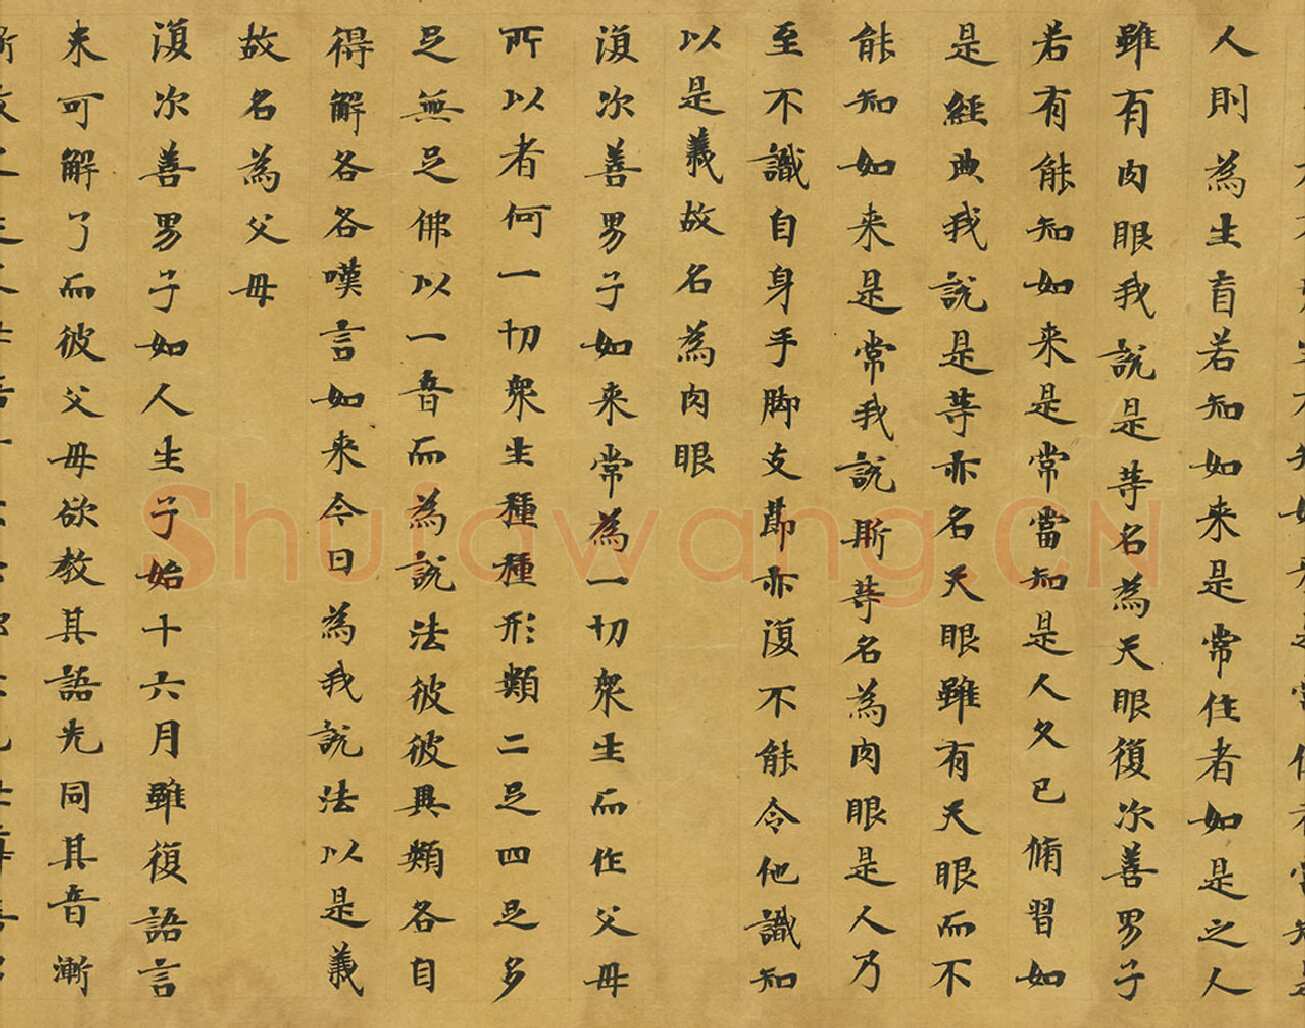 人則為生盲若知如来是常住者如是之人
雖有肉眼我說是䒭名為天眼復次善男子
若有能知如来是常當知是人久已脩習如
是經典我說是䒭亦名天眼雖有天眼而不
能知如来是常我說斯䒭名為肉眼是人乃
至不識自身手脚支莭亦復不能令他識知
以是義故名為肉眼
復次善男子如来常為一切衆生而作父母
所以者何一切衆生種種形類二足四足多
足無足佛以一音而為說法彼彼異類各自
得解各各嘆言如来今日為我說法以是義
故名為父母
復次善男子如人生子始十六月雖復語言
未可解了而彼父母欲教其語先同其音漸
Shufawang.CN